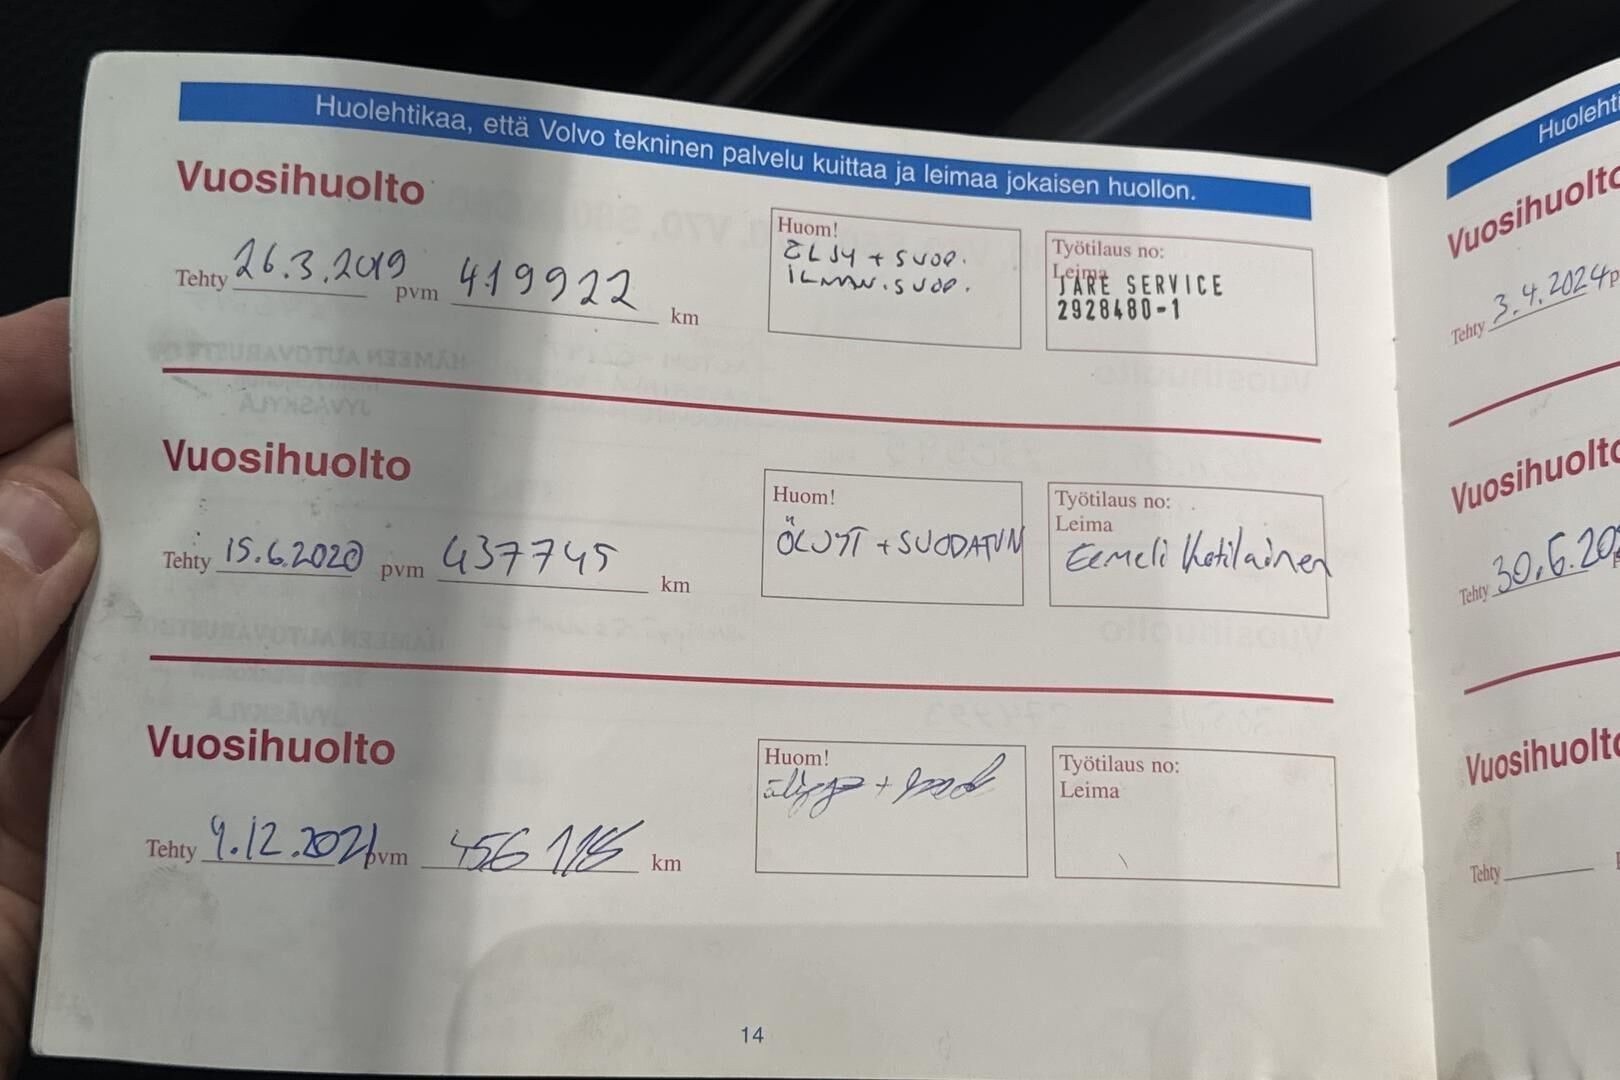 Huolehtikaa, että Volvo tekninen palvelu kuittaa ja leimaa jokaisen huollon.
Vuosihuolto
Tehty 26.3.2019 pvm 419922 km
Huom!
ÖLJY + SUOD.
ILMAN.SUOD.
Työtilaus no:
Leima
JARE SERVICE
2928480-1
Vuosihuolto
Tehty 15.6.2020 pvm 437745 km
Huom!
ÖLJYT + SUODATIN
Työtilaus no:
Leima
Eemeli Kotilainen
Vuosihuolto
Tehty 9.12.2021 pvm 456 118 km
Huom!
Työtilaus no:
Leima
14
Huolehti
Vuosihuolto
Tehty 3.4.2024 p
Vuosihuolto
Tehty 30.6.20
Vuosihuolto
Tehty